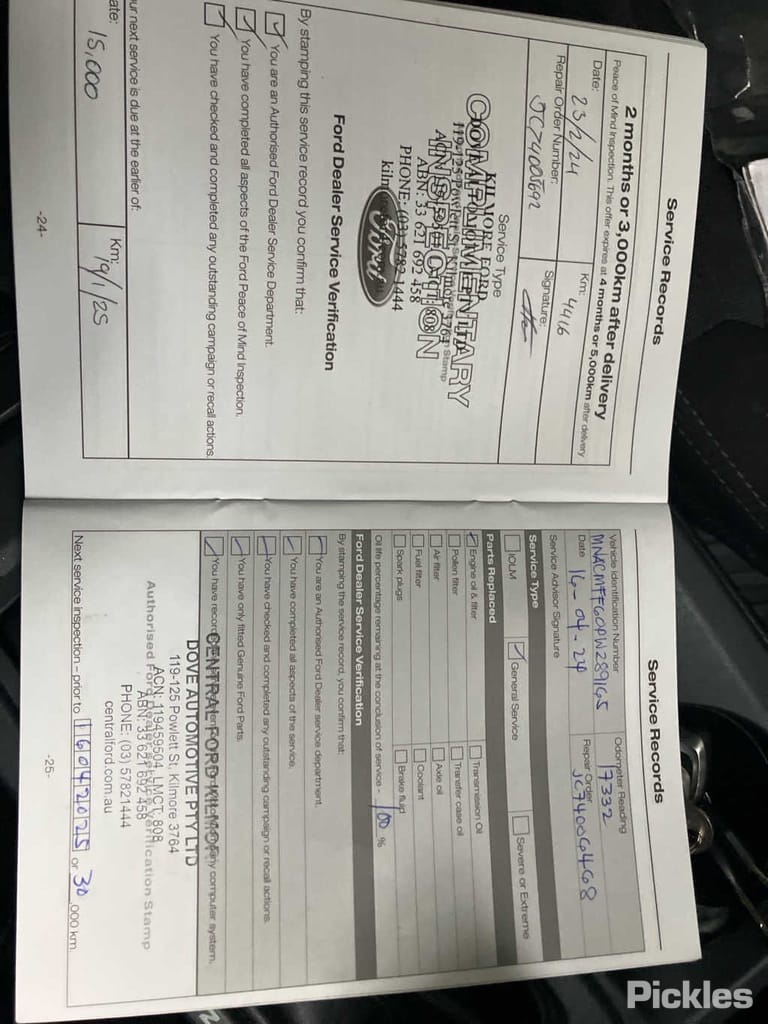 Service Records
2 months or 3,000km after delivery
Peace of Mind Inspection. This offer expires at 4 months or 5,000km after delivery
Date: 23/2/24
Km: 4416
Repair Order Number: JC74005692
Signature:
Service Type
COMPLIMENTARY
INSPECTION
KILMORE FORD
119-125 Powlett St, Kilmore 3764
ABN: 33 621 692 458
PHONE: (03) 5782 1444
Ford
Ford Dealer Service Verification
By stamping this service record you confirm that:
You are an Authorised Ford Dealer Service Department.
You have completed all aspects of the Ford Peace of Mind Inspection.
You have checked and completed any outstanding campaign or recall actions.
ur next service is due at the earlier of:
ate: 15,000
Km: 19/1/25
-24-
Service Records
Vehicle Identification Number
Odometer Reading
17332
Date 16-04-24
Repair Order
JC74006468
Service Advisor Signature
Service Type
IOLM
General Service
Severe or Extreme
Parts Replaced
Engine oil & filter
Transmission Oil
Pollen filter
Transfer case oil
Air filter
Axle oil
Fuel filter
Coolant
Spark plugs
Brake fluid
Oil life percentage remaining at the conclusion of service - 100 %
Ford Dealer Service Verification
By stamping the service record, you confirm that:
You are an Authorised Ford Dealer service department.
You have completed all aspects of the service.
You have checked and completed any outstanding campaign or recall actions.
You have only fitted Genuine Ford Parts.
You have company computer system.
CENTRAL FORD KILMORE
DOVE AUTOMOTIVE PTY LTD
119-125 Powlett St. Kilmore 3764
ACN: 119459504 LMCT: 808
Authorised Ford Dealer service verification Stamp
ABN: 33 621 692 458
PHONE: (03) 57821444
centralford.com.au
Next service inspection - prior to 16042025 or 30 ,000 km.
-25-
Pickles